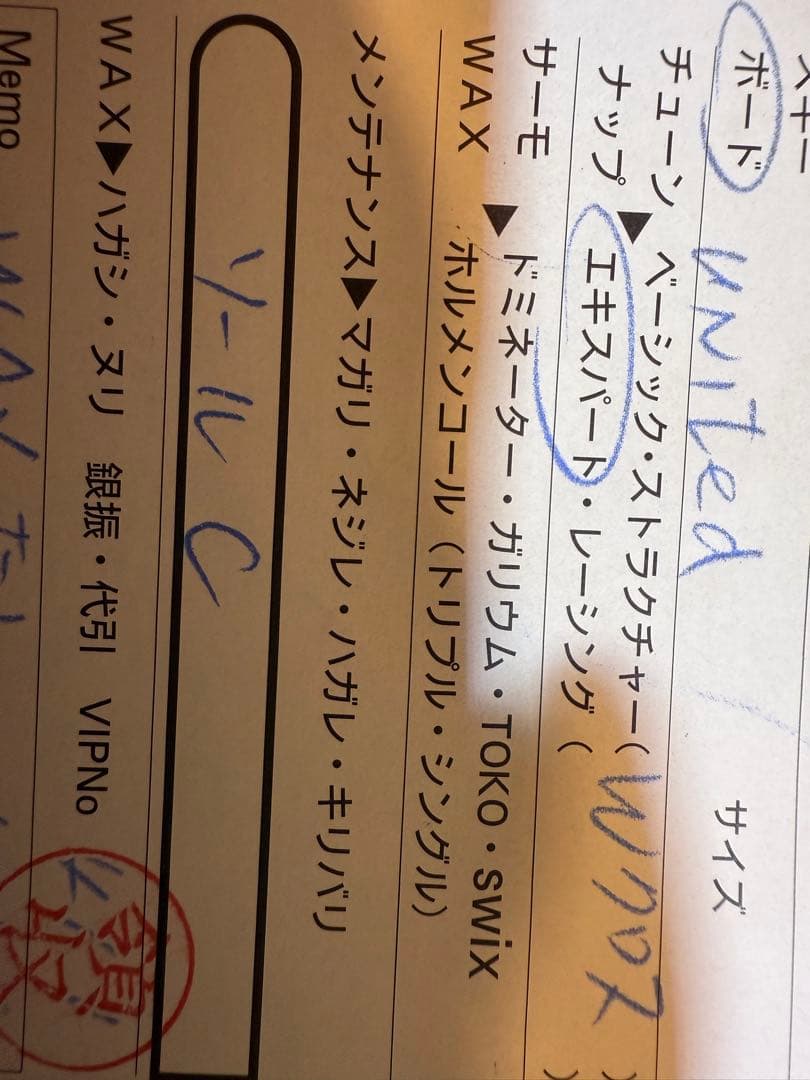 スキー
ボード UNITed サイズ
チューン
ナップ ▶ ベーシック・ストラクチャー( W707 )
エキスパート・レーシング ( )
サーモ
WAX ▶ ドミネーター・ガリウム・TOKO・swix
ホルメンコール(トリプル・シングル)
メンテナンス▶マガリ・ネジレ・ハガレ・キリバリ
ソール C
WAX▶ハガシ・ヌリ 銀振・代引 VIPNo
領収
Memo